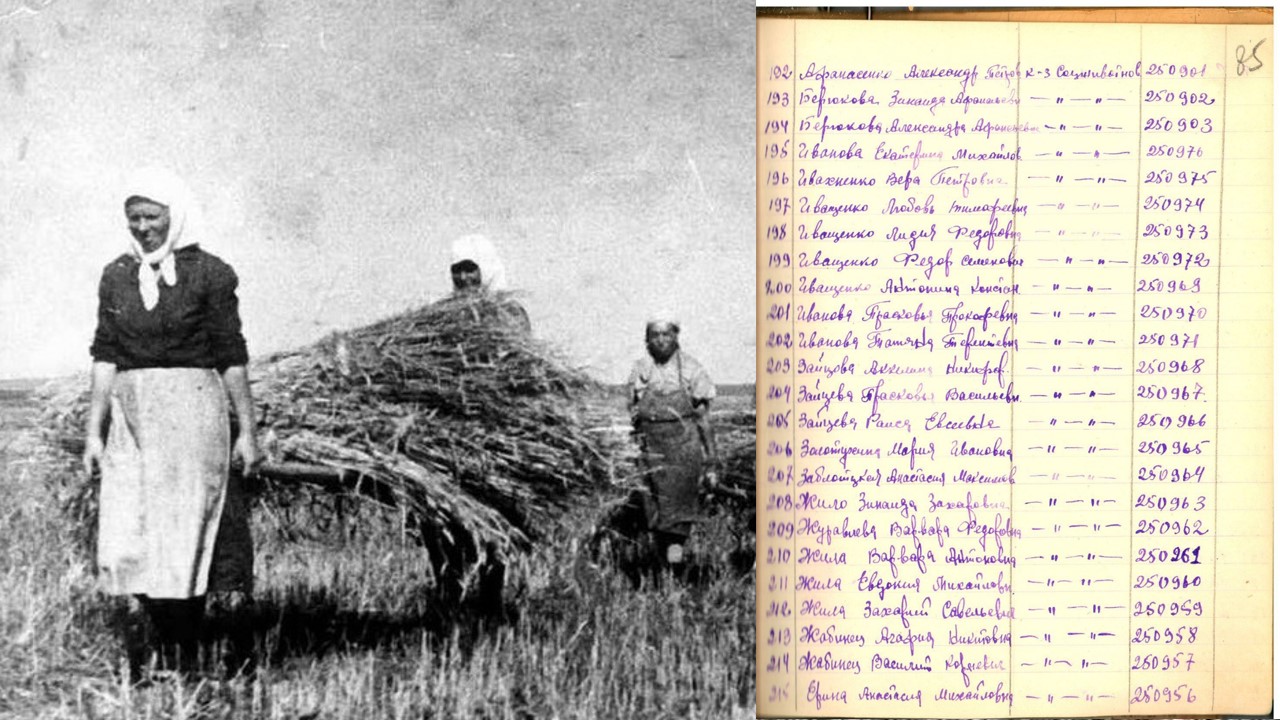 85
192 Афанасенко Александр Петров к-з Соцживотнов 250901
193 Берюкова Зинаида Афанасьевн — " — " — 250902
194 Берюкова Александра Афанасьевн — " — " — 250903
195 Иванова Екатерина Михайлов — " — " — 250976
196 Ивахненко Вера Петровна — " — " — 250975
197 Иващенко Любовь Тимофеевн — " — " — 250974
198 Иващенко Лидия Федоровн — " — " — 250973
199 Иващенко Федор Семенович — " — " — 250972
200 Иващенко Антонина Констан — " — " — 250969
201 Иванова Прасковья Прокофьевн — " — " — 250970
202 Иванова Татьяна Терентьевн — " — " — 250971
203 Зайцова Акилина Никифор. — " — " — 250968
204 Зайцева Прасковья Васильевн. — " — " — 250967.
205 Зайцева Раиса Евсеевна — " — " — 250966
206 Золотухина Мария Ивановна — " — " — 250965
207 Заблоцкая Анастасия Максимов — " — " — 250964
208 Жило Зинаида Захаровна — " — " — 250963
209 Журавлева Варвара Федоровн — " — " — 250962
210 Жила Варвара Антоновна — " — " — 250261
211 Жила Евдокия Михайловн. — " — " — 250960
212 Жила Захарий Савельевич — " — " — 250959
213 Жабинец Агафия Никитовна — " — " — 250958
214 Жабинец Василий — " — " — 250957
215 Ерина Анастасия Михайловна — " — " — 250956